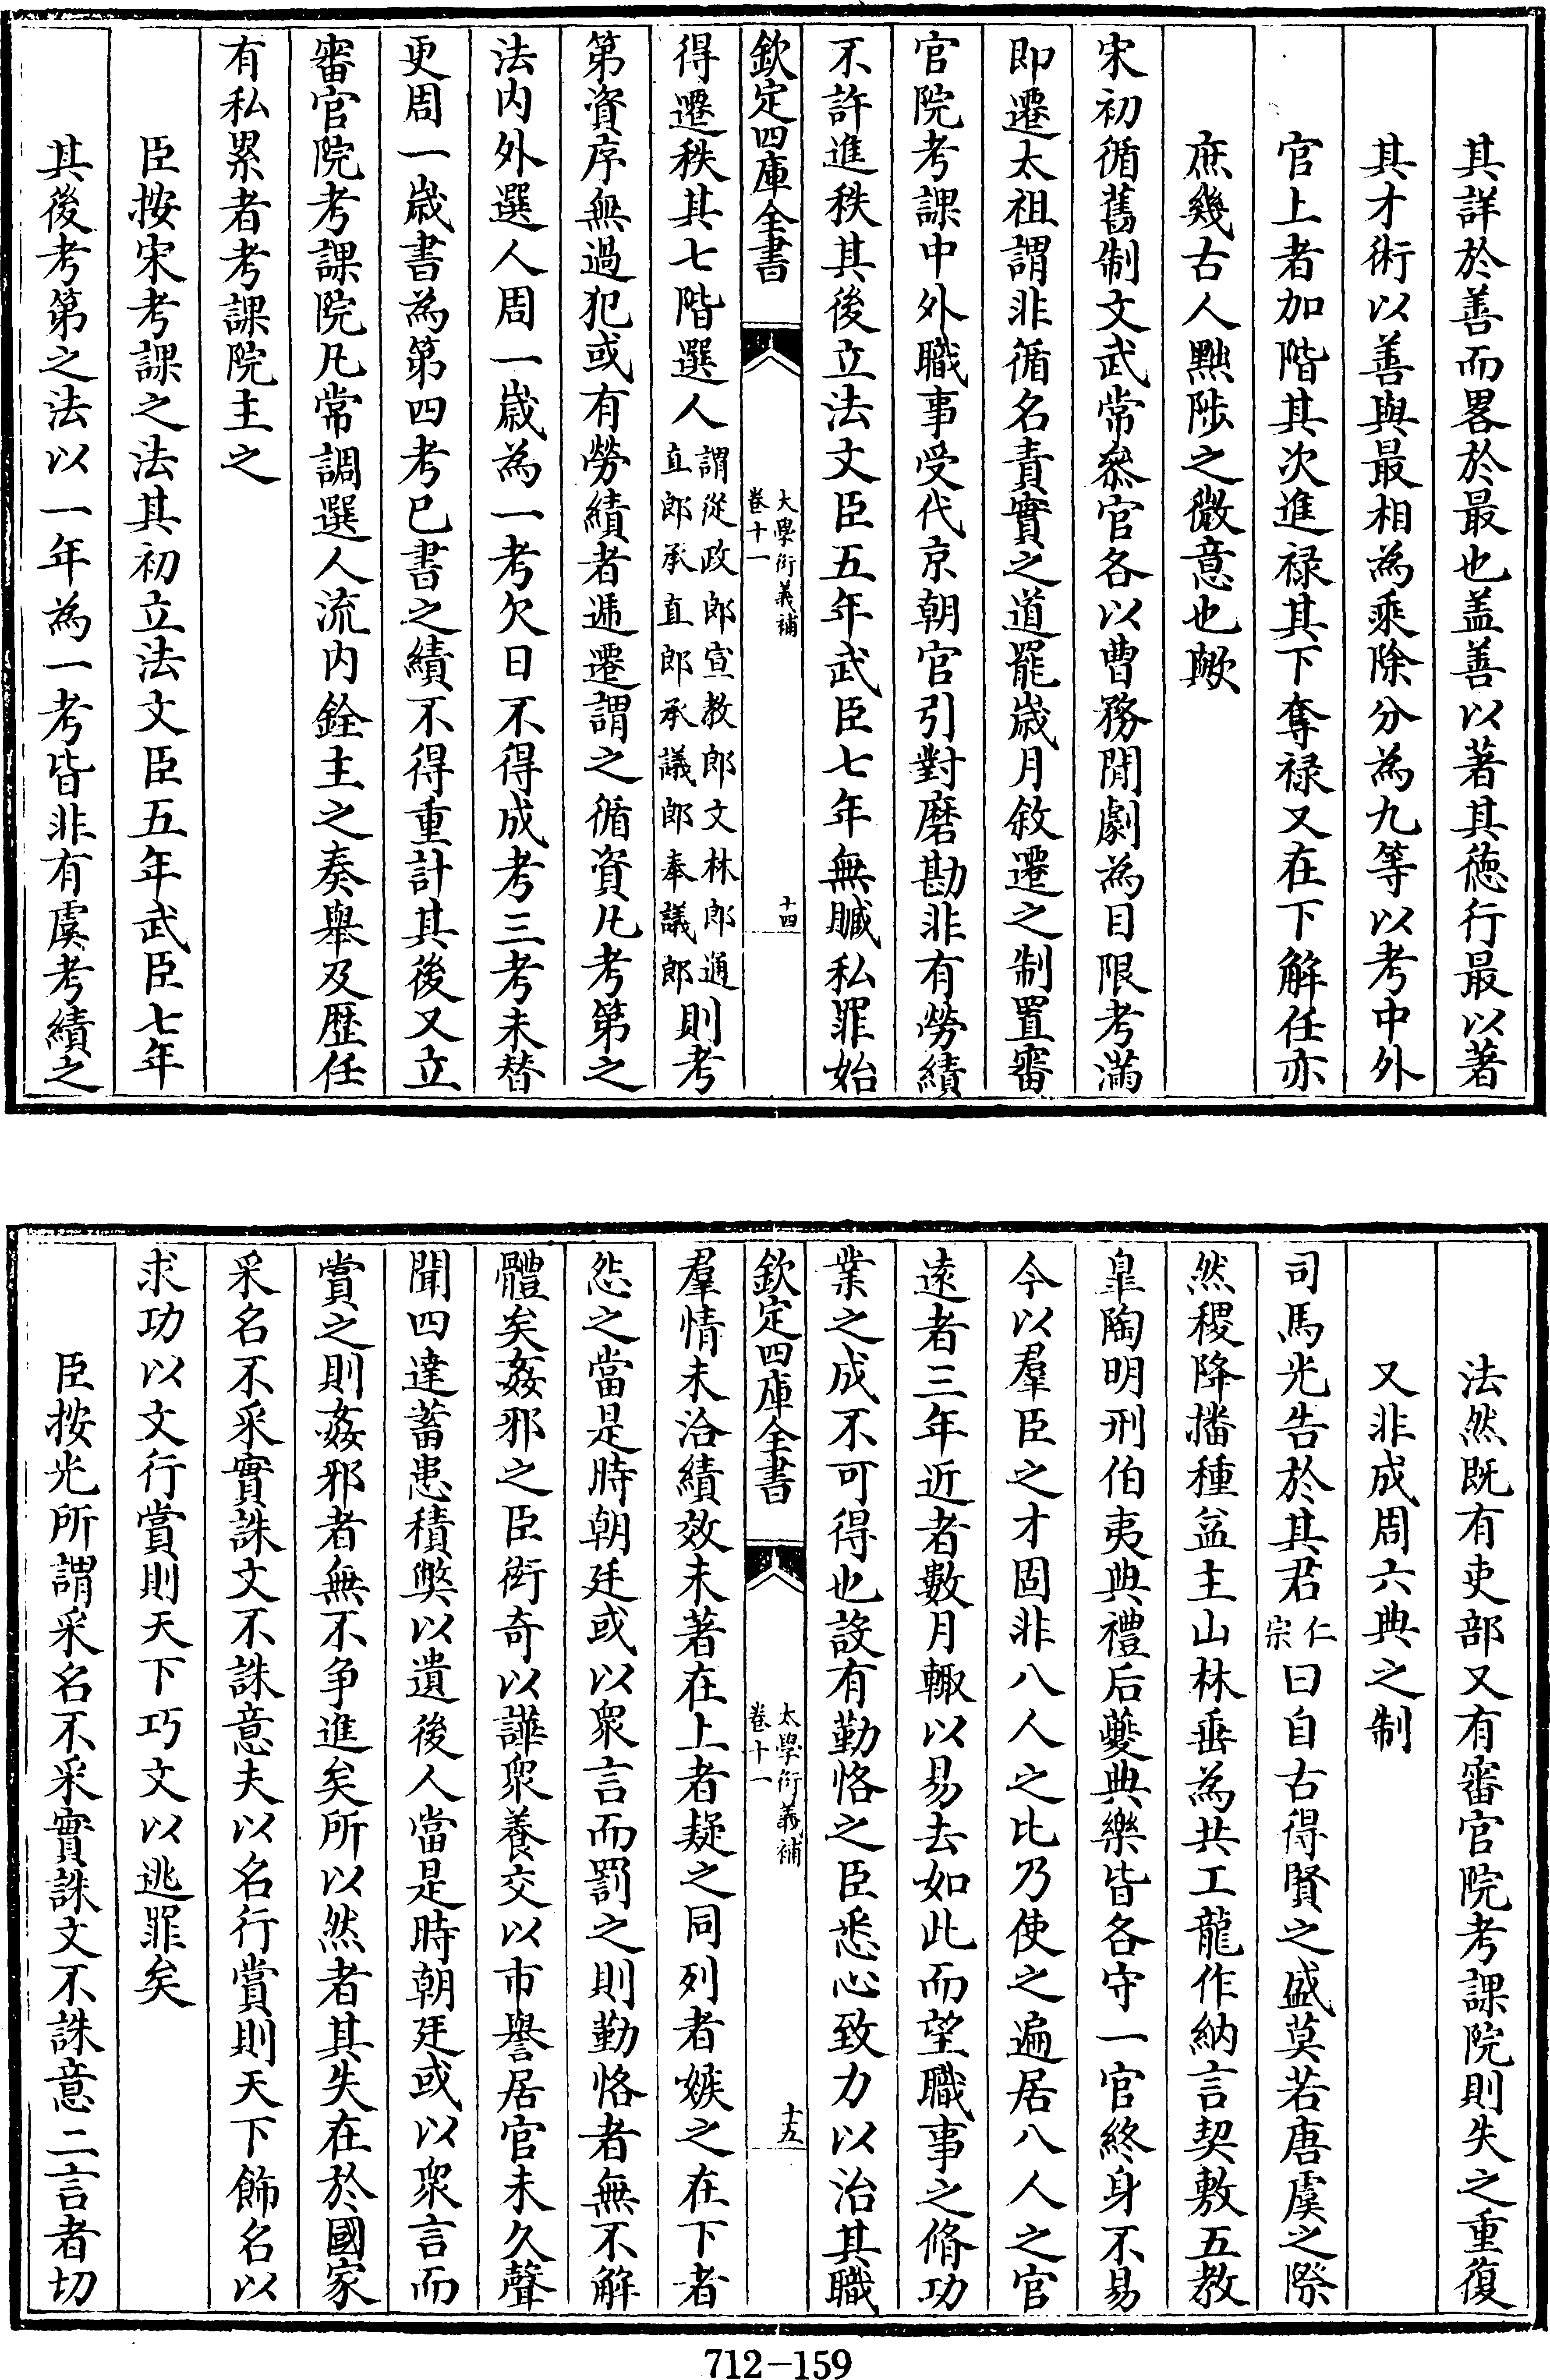 其詳於善而畧於最也盖善以著其徳行最以著
其才術以善與最相為乘除分為九等以考中外
官上者加階其次進禄其下奪禄又在下解任亦
庶幾古人黜陟之微意也歟
宋初循舊制文武常叅官各以曹務閒劇為目限考滿
即遷太祖謂非循名責實之道罷嵗月敘遷之制置審
官院考課中外職事受代京朝官引對磨勘非有勞績
不許進秩其後立法文臣五年武臣七年無贓私罪始
欽定四庫全書
大學衍義補
卷十一
十四
得遷秩其七階選人
謂從政郎宣教郎文林郎通
直郎承直郎承議郎奉議郎
則考
第資序無過犯或有勞績者遞遷謂之循資凡考第之
法内外選人周一嵗為一考欠日不得成考三考未替
更周一嵗書為第四考已書之績不得重計其後又立
審官院考課院凡常調選人流内銓主之奏舉及歴任
有私累者考課院主之
臣按宋考課之法其初立法文臣五年武臣七年
其後考第之法以一年為一考皆非有虞考績之
法然既有吏部又有審官院考課院則失之重復
又非成周六典之制
司馬光告於其君
仁
宗
曰自古得賢之盛莫若唐虞之際
然稷降播種益主山林垂為共工龍作納言契敷五教
臯陶明刑伯夷典禮后夔典樂皆各守一官終身不易
今以羣臣之才固非八人之比乃使之遍居八人之官
逺者三年近者數月輙以易去如此而望職事之脩功
業之成不可得也設有勤恪之臣悉心致力以治其職
欽定四庫全書
大學衍義補
卷十一
十五
羣情未洽績效未著在上者疑之同列者嫉之在下者
怨之當是時朝廷或以衆言而罰之則勤恪者無不解
體矣姦邪之臣衒奇以譁衆養交以市譽居官未久聲
聞四達蓄患積獘以遺後人當是時朝廷或以衆言而
賞之則姦邪者無不争進矣所以然者其失在於國家
采名不采實誅文不誅意夫以名行賞則天下飾名以
求功以文行賞則天下巧文以逃罪矣
臣按光所謂采名不采實誅文不誅意二言者切
712-159